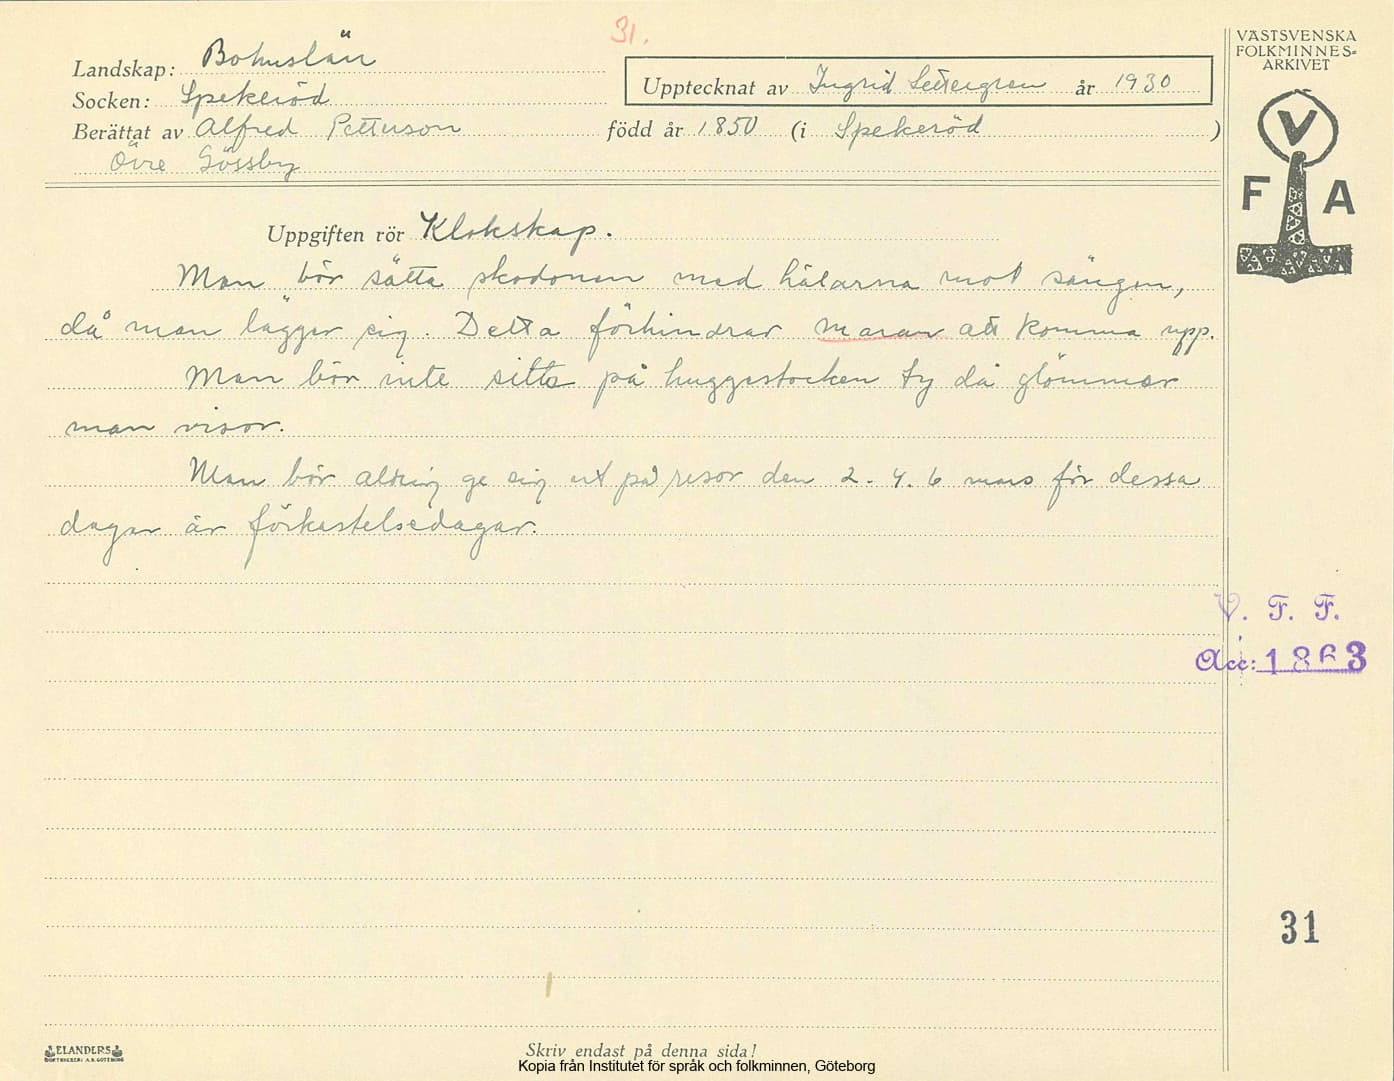 31.
Landskap: Bohuslän
Upptecknat av Ingrid Settergren år 1930
Socken: Spekeröd
Berättat av Alfred Petterson född år 1850 (i Spekeröd )
Övre Gössby
Uppgiften rör Klokskap.
Man bör sätta skodonen med hälarna mot sängen,
då man lägger sig. Detta förhindrar maran att komma upp.
Man bör inte sitta på huggestocken ty då glömmer
man visor.
Man bör aldrig ge sig ut på resor den 2. 4. 6 mars för dessa
dagar är förkastelsedagar.
VÄSTSVENSKA
FOLKMINNES-
ARKIVET
V
F A
V. F. F.
Acc: 1863
31
ELANDERS
Skriv endast på denna sida!
Kopia från Institutet för språk och folkminnen, Göteborg